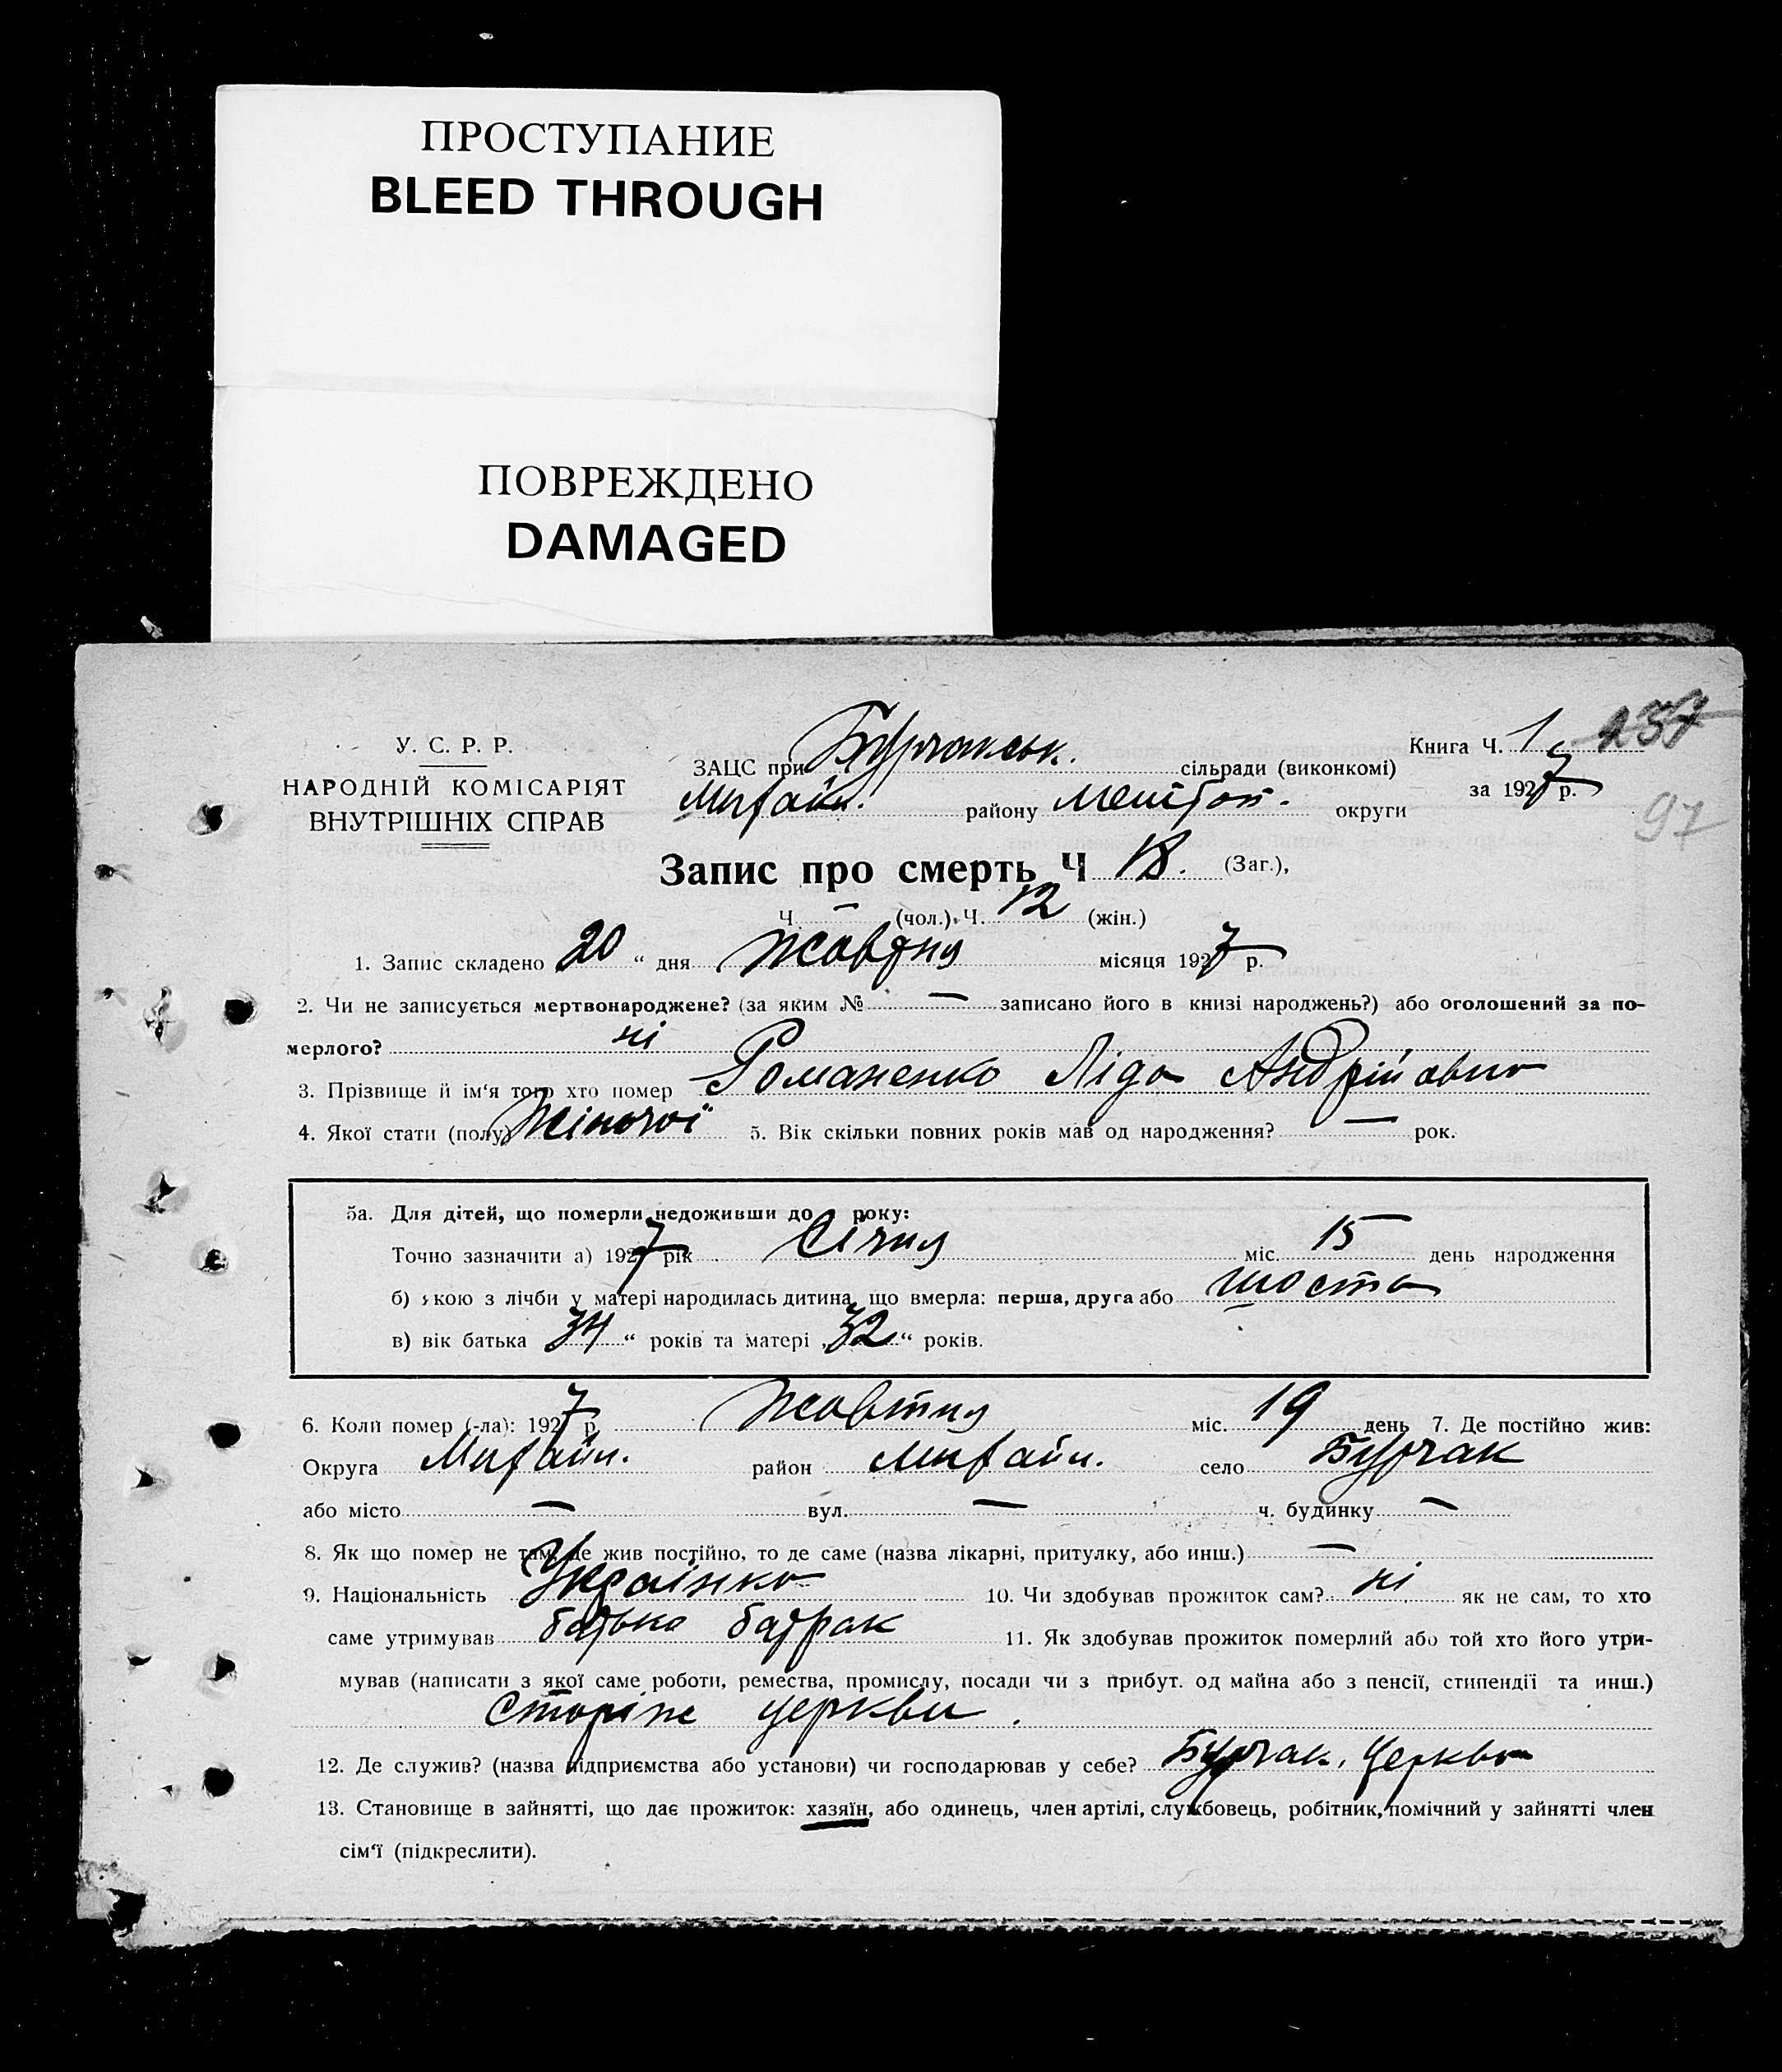 ПРОСТУПАНИЕ
BLEED THROUGH
ПОВРЕЖДЕНО
DAMAGED
У. С. Р. Р.
НАРОДНІЙ КОМІСАРІЯТ
ВНУТРІШНІХ СПРАВ
ЗАЦС при Бурчакськ. сільради (виконкомі)
Михайл. району Мелітоп. округи
Книга Ч. 1 257
за 1927 р.
97
Запис про смерть Ч 18. (Заг.),
Ч. — (чол.), Ч. 12 (жін.)
1. Запис складено 20 “ дня Жовтня місяця 1927 р.
2. Чи не записується мертвонароджене? (за яким № — записано його в книзі народжень?) або оголошений за по-
мерлого? ні
3. Прізвище й ім‘я того хто помер Романенко Ліда Андрійовна
4. Якої стати (полу) Жіночої 5. Вік скільки повних років мав од народження? — рок.
5а. Для дітей, що померли недоживши до року:
Точно зазначити а) 1927 рік Січня міс. 15 день народження
б) якою з лічби у матері народилась дитина, що вмерла: перша, друга або шоста
в) вік батька 34 “ років та матері „ 32 “ років.
6. Коли помер (-ла): 1927 р. Жовтня міс. 19 день 7. Де постійно жив:
Округа Михайл. район Михайл. село Бурчак
або місто — вул. — ч. будинку —
8. Як що помер не там, де жив постійно, то де саме (назва лікарні, притулку, або инш.) —
9. Національність Українка 10. Чи здобував прожиток сам? ні як не сам, то хто
саме утримував батько батрак 11. Як здобував прожиток померлий або той хто його утри-
мував (написати з якої саме роботи, ремества, промислу, посади чи з прибут. од майна або з пенсії, стипендії та инш.)
Сторіж церкви.
12. Де служив? (назва підприємства або установи) чи господарював у себе? Бурчак. Церква
13. Становище в зайнятті, що дає прожиток: хазяїн, або одинець, член артілі, службовець, робітник, помічний у зайнятті член
сім‘ї (підкреслити).